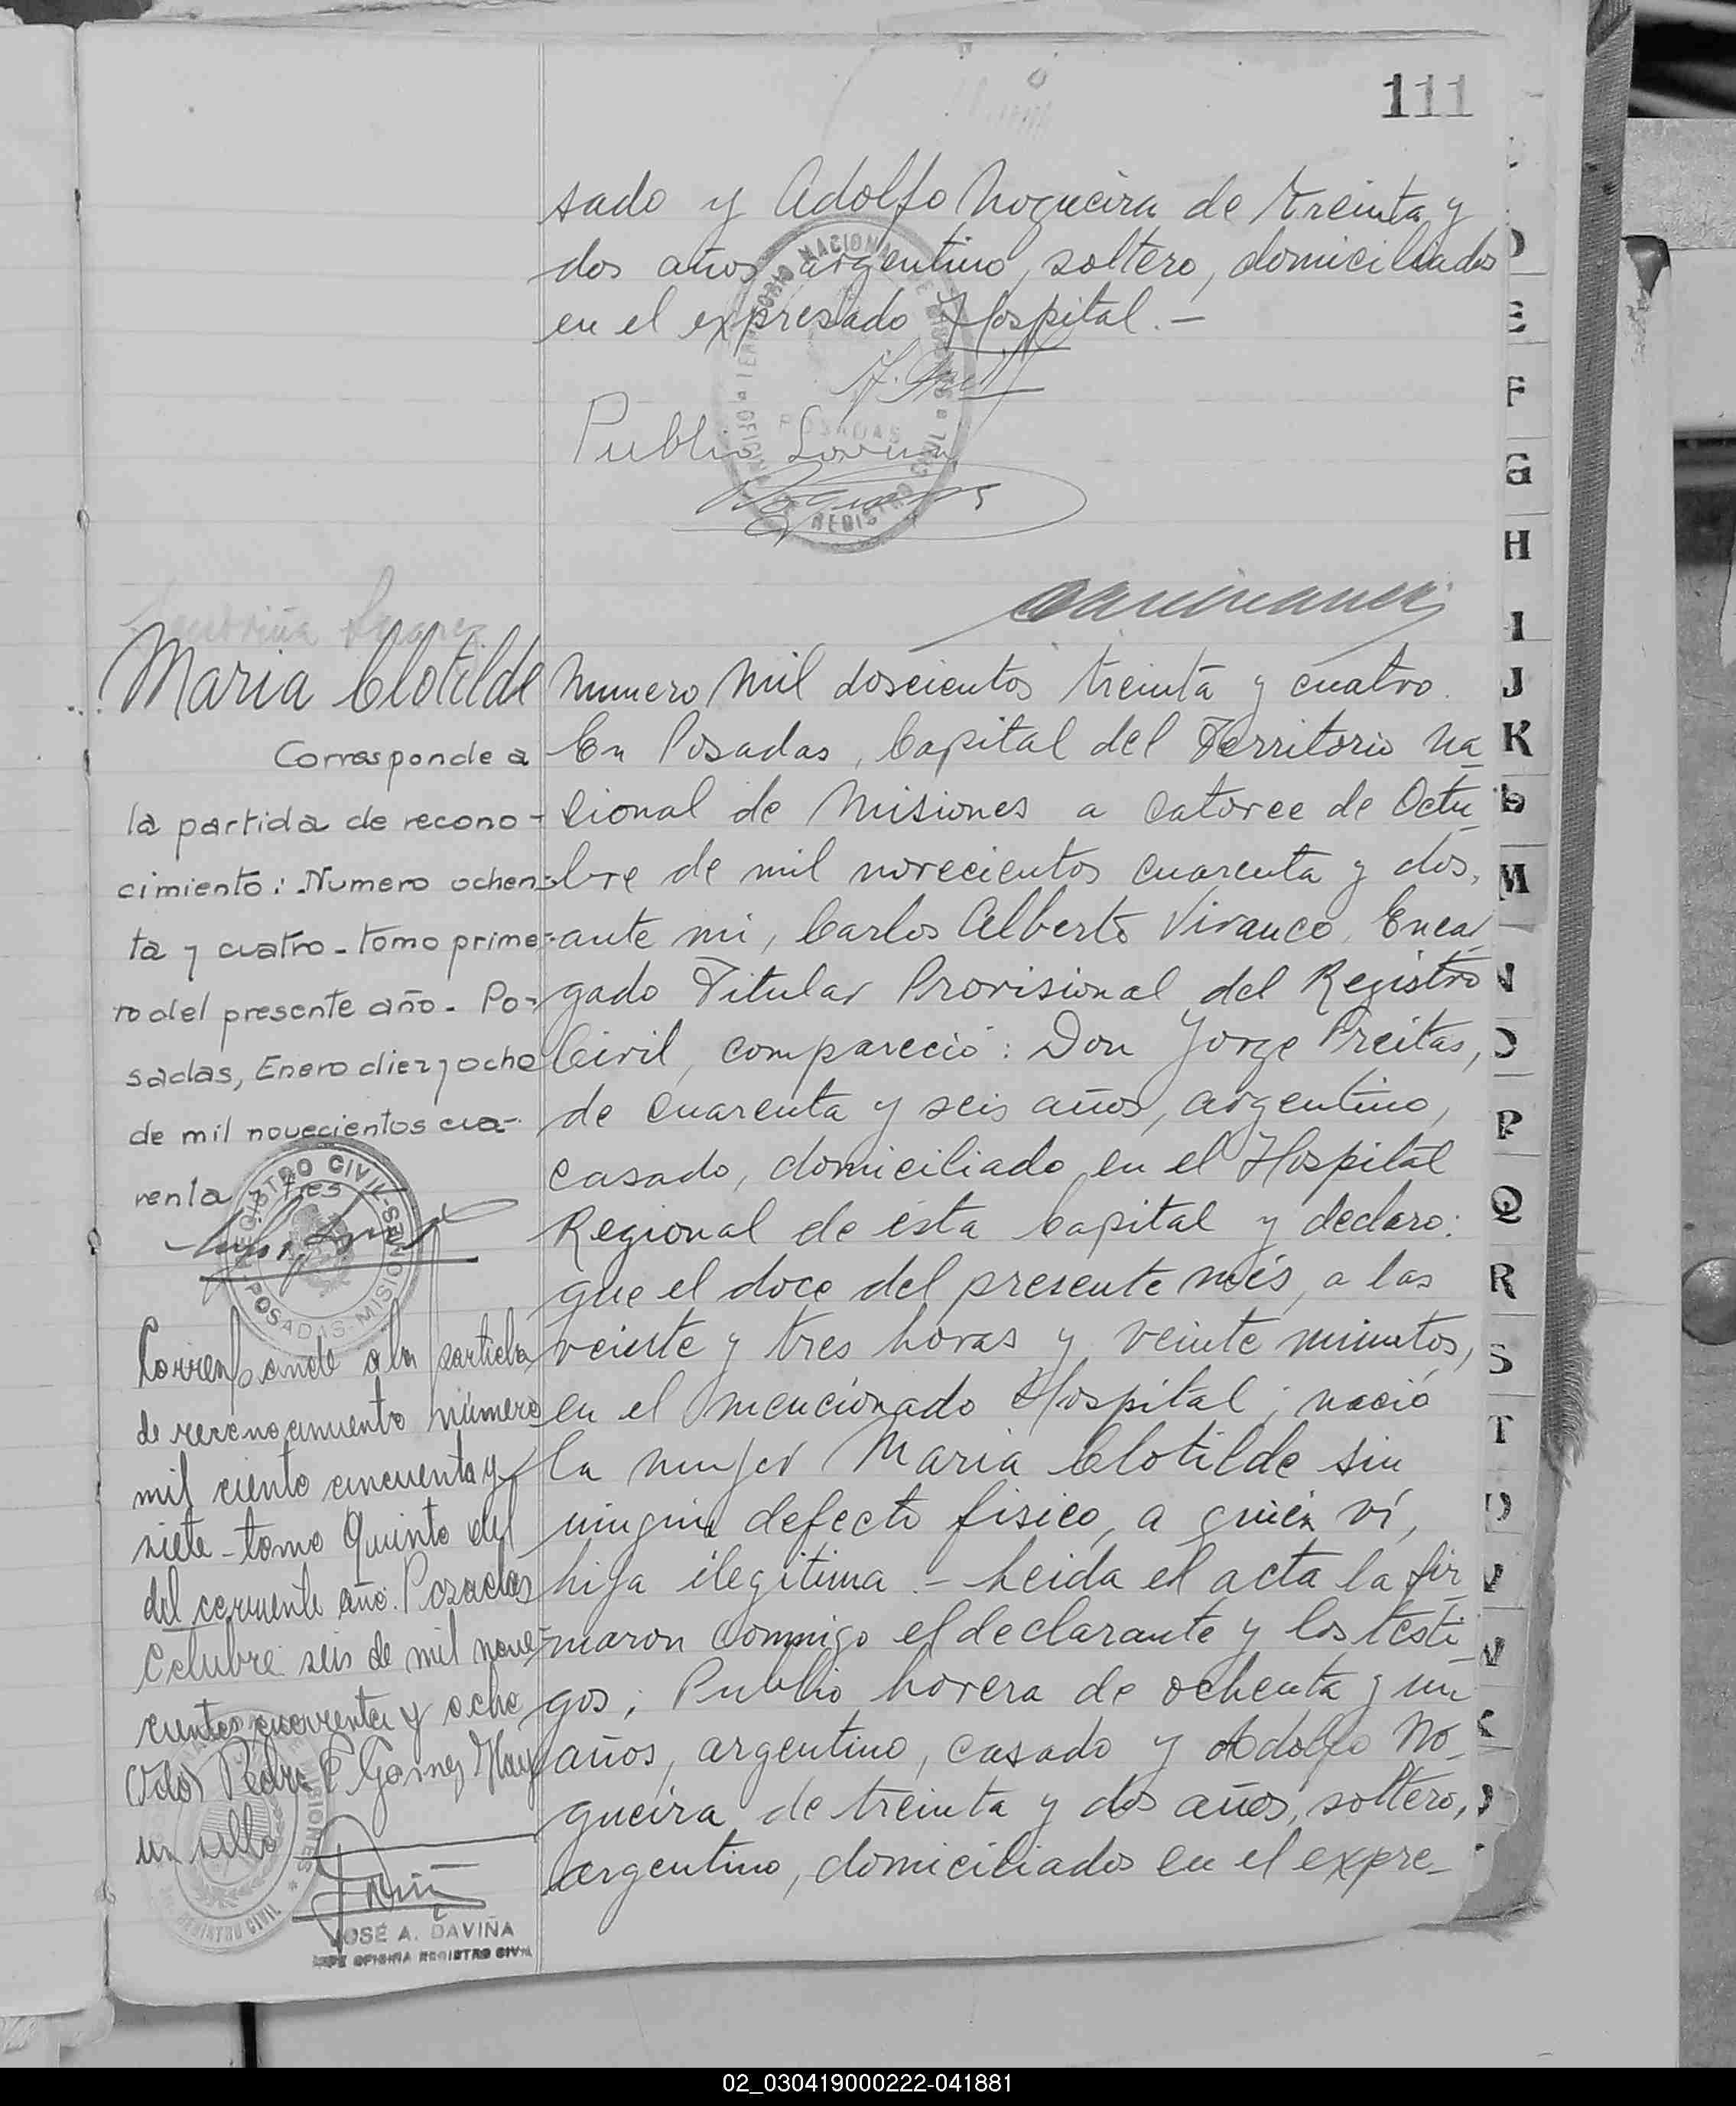 111
sado y Adolfo Nogueira de treinta y
dos años argentino, soltero, domiciliados
en el expresado Hospital.-
Publio Lovera
Nogueira
TERRITORIO NACIONAL DE MISIONES
POSADAS
OFICINA REGISTRO CIVIL
Maria Clotilde
Corresponde a
la partida de recono-
cimiento: Numero ochen-
ta y cuatro - tomo prime-
ro del presente año - Po-
sadas, Enero diez y ocho
de mil novecientos cua-
renta y tres
REGISTRO CIVIL
POSADAS - MISIONES
Corresponde a la partida
de reconocimiento número
mil ciento cincuenta y
siete - tomo Quinto del
del corriente año. Posadas
Octubre seis de mil nove-
cientos cuarenta y ocho
Pedro Gomez
un sello
REGISTRO CIVIL
JOSÉ A. DAVIÑA
JEFE OFICINA REGISTRO CIVIL
Numero Mil doscientos treinta y cuatro.
En Posadas, Capital del Territorio Na
cional de Misiones a catorce de Octu
bre de mil novecientos cuarenta y dos,
ante mi, Carlos Alberto Vivanco, Encar
gado Titular Provisional del Registro
Civil, compareció: Don Jorge Freitas,
de cuarenta y seis años, argentino,
casado, domiciliado en el Hospital
Regional de ésta Capital y declaro:
que el doce del presente més, a las
veinte y tres horas y veinte minutos,
en el mencionado Hospital; nació
la mujer Maria Clotilde sin
ningun defecto fisico, a quién ví,
hija ilegitima.- Leida el acta la fir
maron conmigo el declarante y los testi
gos; Publio Lovera de ochenta y un
años, argentino, casado y Adolfo No-
gueira de treinta y dos años, soltero,
argentino, domiciliados en el expre-
E
F
G
H
I
J
K
M
P
Q
R
S
T
02_030419000222-041881